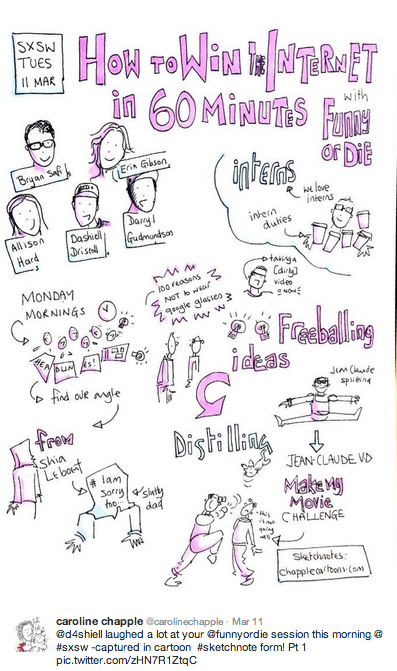 SXSW
TUES
11 MAR
HOW TO WIN THE INTERNET
in 60 MINUTES
with
FUNNY
OR DIE
Bryan Safi
Erin Gibson
Allison
Hard
Dashiell
Driscoll
Darryl
Gudmundson
interns
we love
interns
intern
duties
taking a
[dirty]
video
MONDAY
MORNINGS
find our angle
100 reasons
NOT to wear
google glasses
Freeballing
ideas
Jean Claude
splitting
from
Shia
Lebeouf
# I am
sorry
too
slutty
dad
Distilling
JEAN-CLAUDE V.D
MAKE MY
MOVIE
CHALLENGE
this
is not
going
well
Sketchnotes:
chapplecartoons.com
caroline chapple @carolinechapple · Mar 11
@d4shiell laughed a lot at your @funnyordie session this morning @
#sxsw -captured in cartoon #sketchnote form! Pt 1
pic.twitter.com/zHN7R1ZtqC